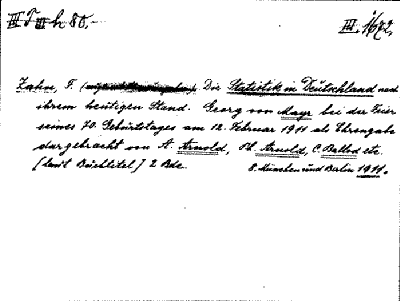 III T III h 80,- III. 1672.
Zahn, F. Die Statistik in Deutschland nach
ihrem heutigen Stand. Georg von Mayr bei der Feier
seines 70. Geburtstages am 12. Februar 1911 als Ehrengabe
dargebracht von A. Arnold, Ph. Arnold, C. Ballod etc.
[laut Buchtitel] 2 Bde. 8. München und Berlin 1911.